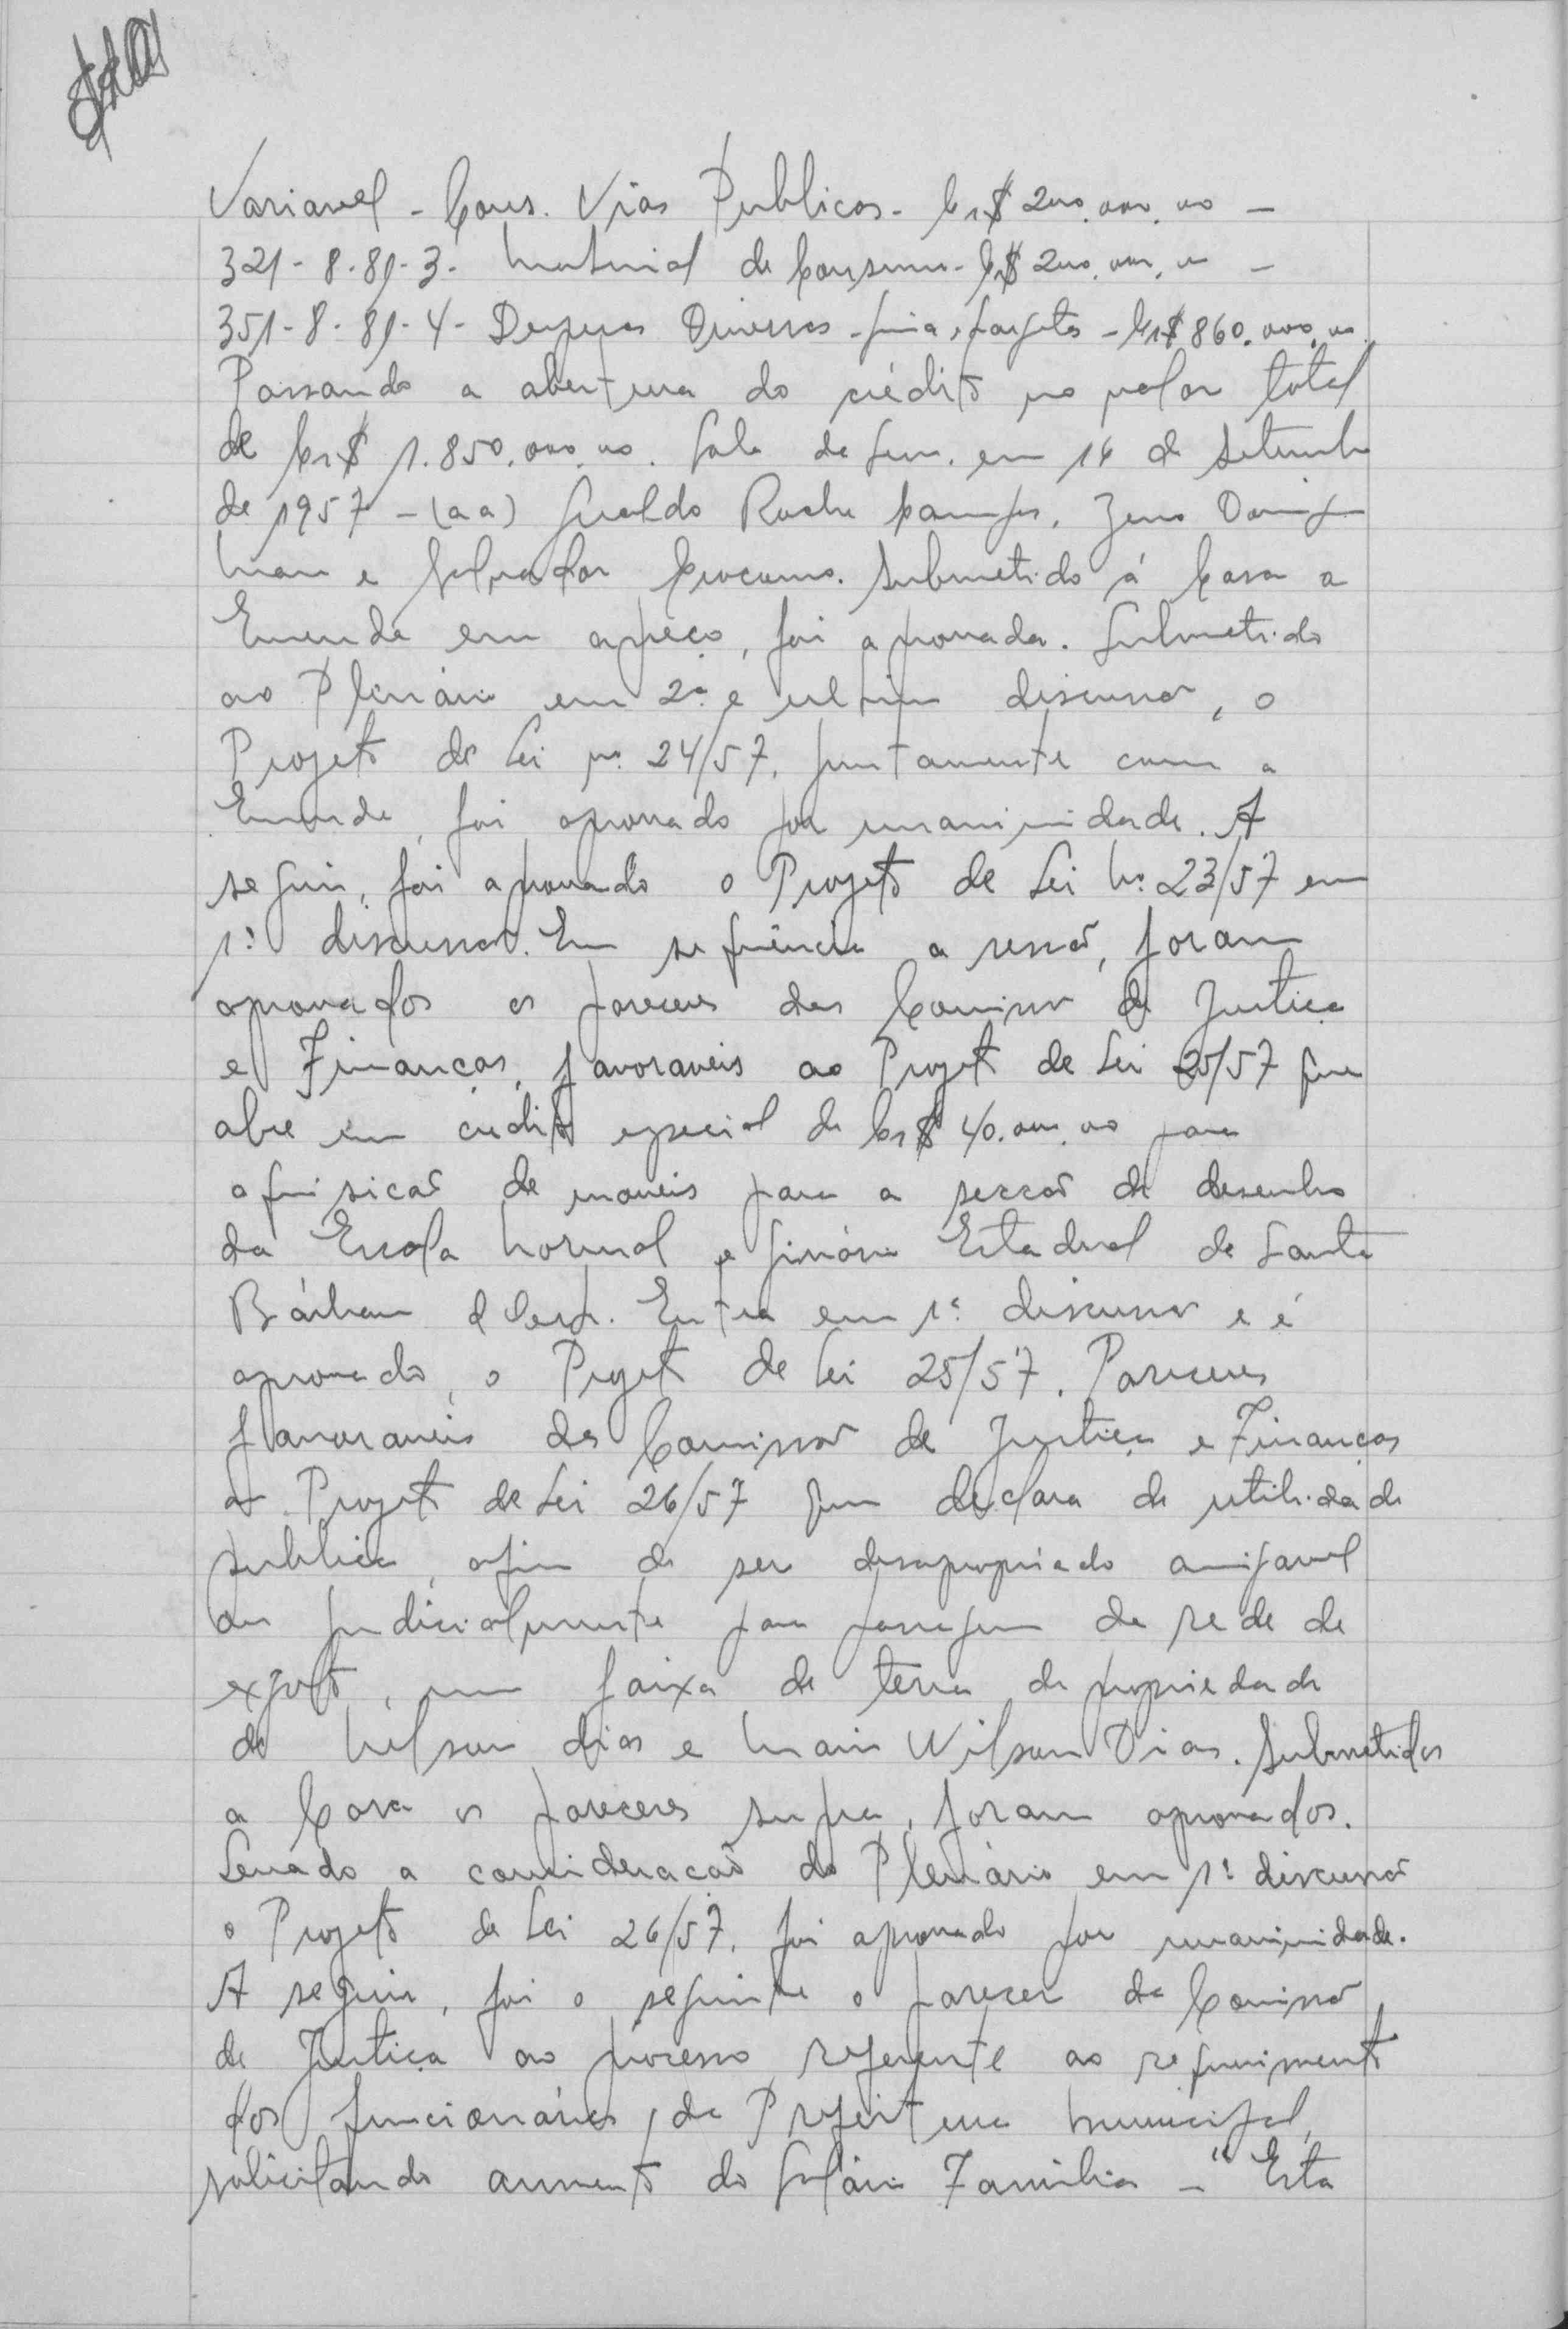 Variavel - Cons. Vias Publicas - Cr$ 200.000,00 -
321-8-81-3- Material de Consumo - Cr$ 200.000,00 -
351-8-81-4- Despesas Diversas - guia e sarjetas - Cr$ 860.000,00
Passando a abertura do crédito no valor total
de Cr$ 1.850.000,00. Sala de Sess. em 16 de Setembro
de 1957 - (aa) Geraldo Rocha Campos, Zeno Domingo
Maia e Salvador. Submetido á Casa a
Emenda em apreço, foi aprovada. Submetido
ao Plenário em 2ª e ultima discussão, o
Projeto de Lei nº 24/57, juntamente com a
Emenda, foi aprovado por unanimidade. A
seguir, foi aprovado o Projeto de Lei Nº 23/57 em
1ª discussão. Em sequência a sessão, foram
aprovados os pareceres das Comissão de Justiça
e Finanças, favoraveis ao Projeto de Lei 25/57 que
abre um crédito especial de Cr$ 40.000,00 para
aquisicão de moveis para a seccão de desenho
da Escola Normal e Ginásio Estadual de Santa
Bárbara d'Oeste. Entra em 1ª discussão e é
aprovado, o Projeto de Lei 25/57. Pareceres
favoraveis da Comissão de Justiça e Finanças
ao Projeto de Lei 26/57 que declara de utilidade
publica, afim de ser desapropriado amigavel
ou judicialmente para passagem da rede de
exgoto, uma faixa de terra de propriedade
de Nelson Dias e Mario Wilson Dias. Submetidos
a Casa os pareceres supra, foram aprovados.
Levado a consideracão do Plenário em 1ª discussão
o Projeto de Lei 26/57, foi aprovado por unanimidade.
A seguir, foi o seguinte o parecer da Comissão
de Justiça ao processo referente ao requerimento
dos funcionários da Prefeitura Municipal,
solicitando aumento do Salário Familia - "Esta